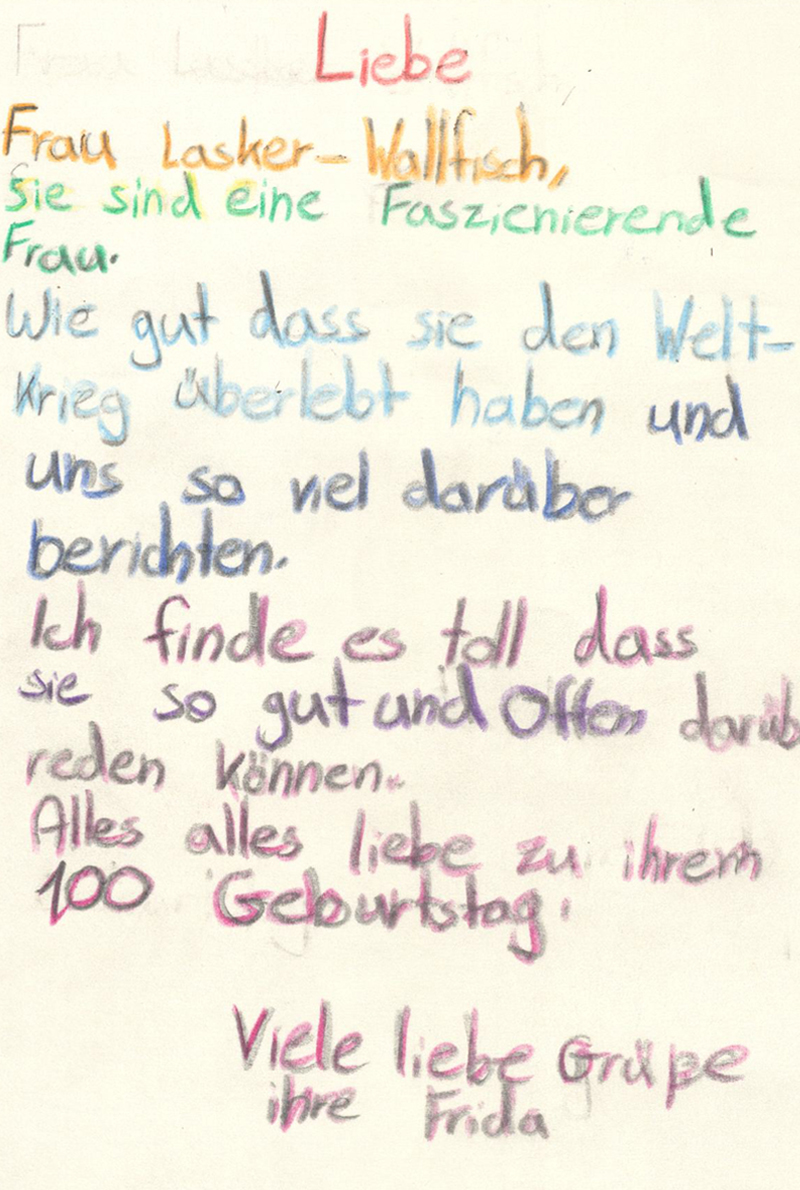 Liebe
Frau Lasker-Wallfisch,
Sie sind eine Faszienierende
Frau.
Wie gut dass sie den Welt-
Krieg überlebt haben und
uns so viel darüber
berichten.
Ich finde es toll dass
sie so gut und Offen darüb
reden können.
Alles alles liebe zu ihrem
100 Geburtstag!
Viele liebe Grüße
ihre Frida